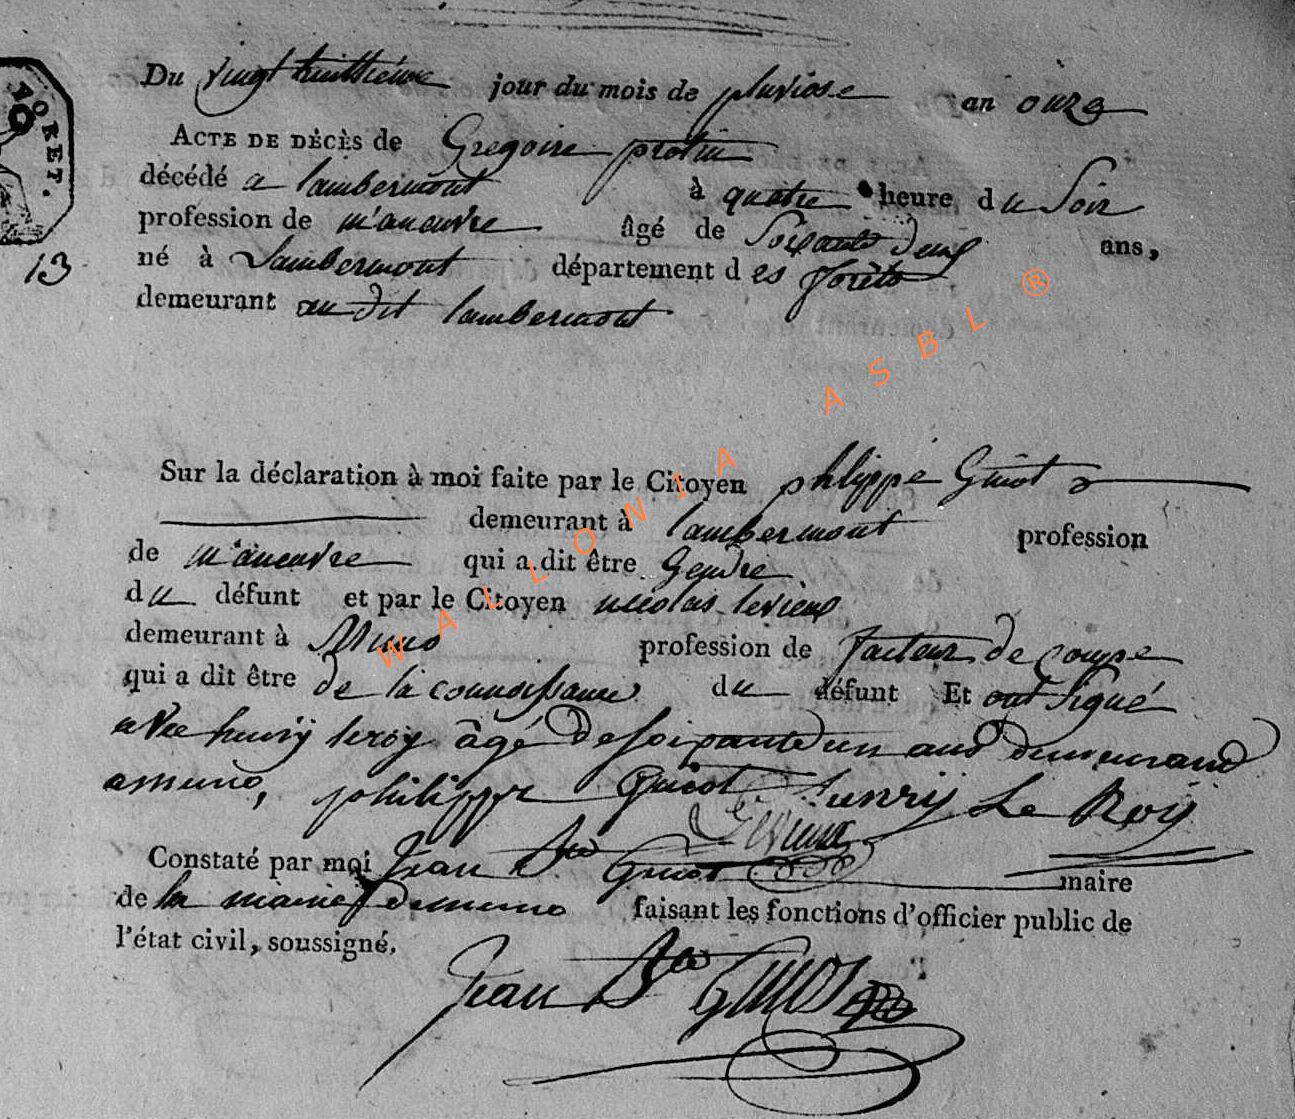 Du vingt huittiéme jour du mois de pluviose an onze
ACTE DE DÉCÈS de Gregoire protin
décédé a lambermont à quatre heure du Soir
profession de m'aneuvre âgé de Soixante deux ans,
né à Lambermont département des forêts
demeurant au dit lambermont
FORET.
13
Sur la déclaration à moi faite par le Citoyen phlippe Guiot
demeurant à lambermont profession
de m'aneuvre qui a dit être Gendre
du défunt et par le Citoyen nicolas levieux
demeurant à Muno profession de facteur de coupe
qui a dit être de la connoissance du défunt Et ont signé
avec henrÿ leroy âgé de soixante un ans demeurand
a muno, philippe Guiot henrij Le Roij
Constaté par moi Jean Bte Guiot maire
de la mairie de muno faisant les fonctions d'officier public de
l'état civil, soussigné.
Jean Bte GUIOT
WALLONIA ASBL ®